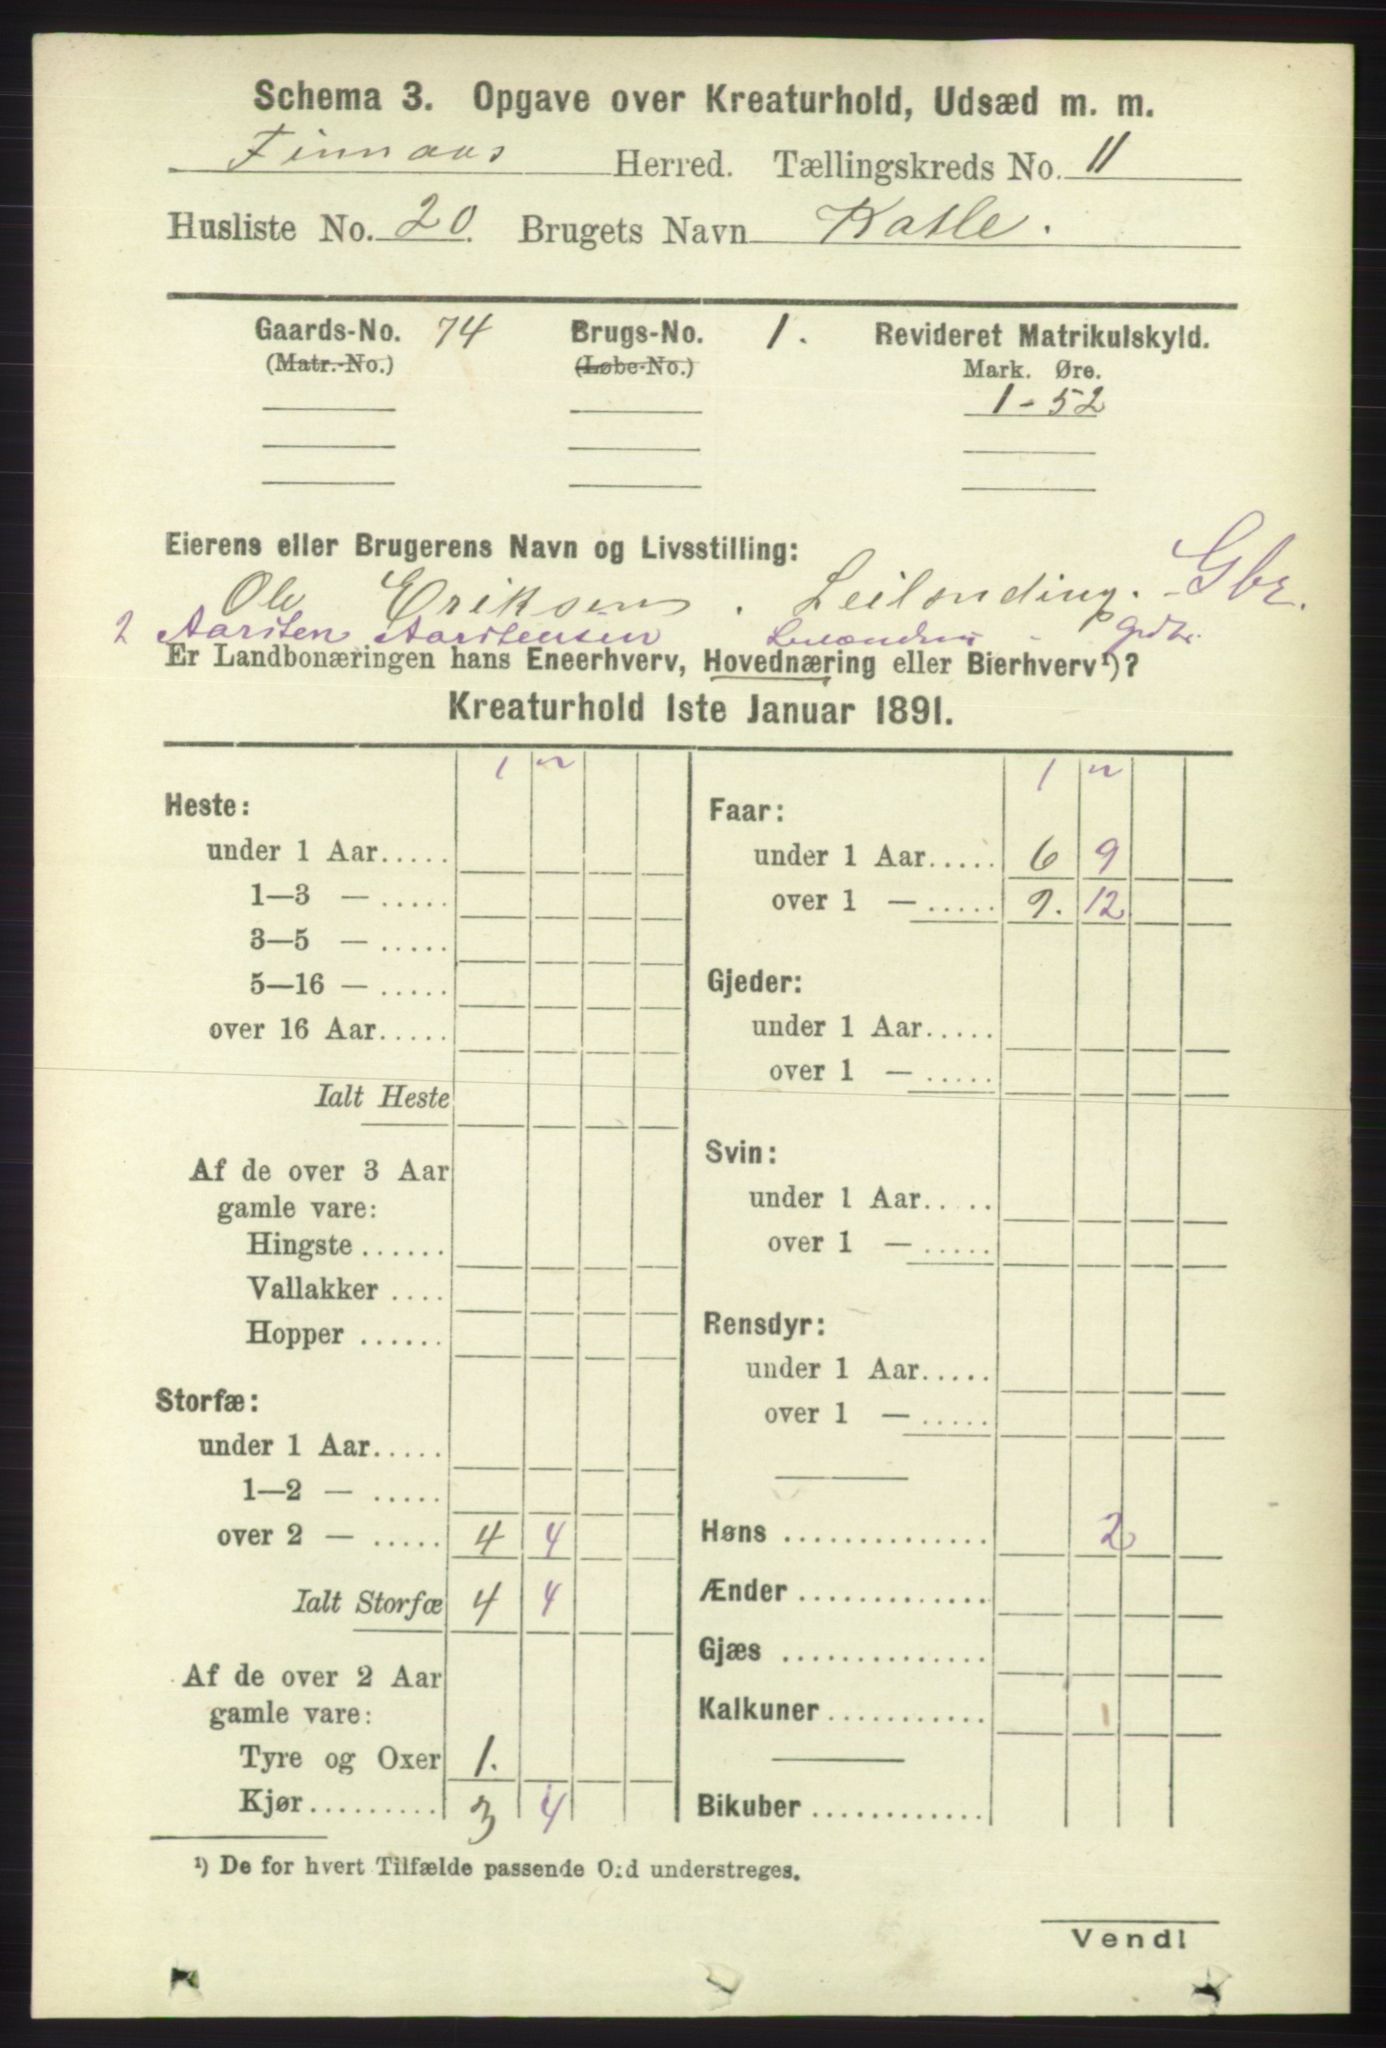 Schema 3. Opgave over Kreaturhold, Udsæd m. m.
Finnaas Herred. Tællingskreds No. 11
Husliste No. 20 Brugets Navn Katle.
Gaards-No. 74 Brugs-No. 1. Revideret Matrikulskyld.
(Matr.-No.) (Løbe-No.) Mark. Øre.
1-52
Eierens eller Brugerens Navn og Livsstilling:
Ole Eriksen. Leilending. Gbr.
2 Aarsten Aarstensen Grdbr.
Er Landbonæringen hans Eneerhverv, Hovednæring eller Bierhverv¹)?
Kreaturhold 1ste Januar 1891.
1 2
Heste:
under 1 Aar.....
1—3 — .....
3—5 — .....
5—16 — .....
over 16 Aar.....
Ialt Heste
Af de over 3 Aar
gamle vare:
Hingste ......
Vallakker ....
Hopper ......
Storfæ:
under 1 Aar.....
1—2 — .....
over 2 — ..... 4 4
Ialt Storfæ 4 4
Af de over 2 Aar
gamle vare:
Tyre og Oxer 1.
Kjør......... 3 4
1 2
Faar:
under 1 Aar..... 6 9
over 1 — ..... 9. 12
Gjeder:
under 1 Aar.....
over 1 — .....
Svin:
under 1 Aar.....
over 1 — .....
Rensdyr:
under 1 Aar.....
over 1 — .....
Høns ............... 2
Ænder .............
Gjæs ..............
Kalkuner ...........
Bikuber ............
¹) De for hvert Tilfælde passende Ord understreges.
Vendl